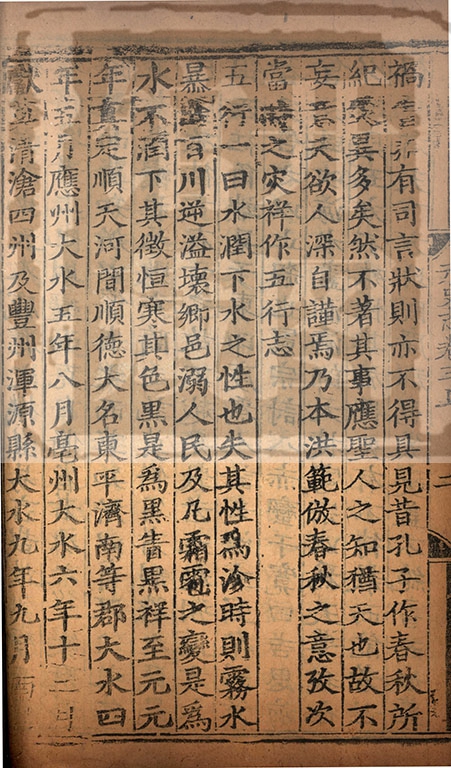 有司言狀則亦不得具見昔孔子作春秋所
紀異多矣然不著其事應聖人之知猶天也故不
妄意天欲人深自謹焉乃本洪範倣春秋之意攷次
當時之灾祥作五行志
五行一曰水潤下水之性也失其性爲沴時則霧水
暴百川逆溢壞鄉邑溺人民及凡霜雹之變是爲
水不潤下其徵恒寒其色黑是爲黑眚黑祥至元元
年真定順天河間順德大名東平濟南等郡大水四
年五月應州大水五年八月亳州大水六年十二月
獻莫清滄四州及豐州渾源縣大水九年九月南
二